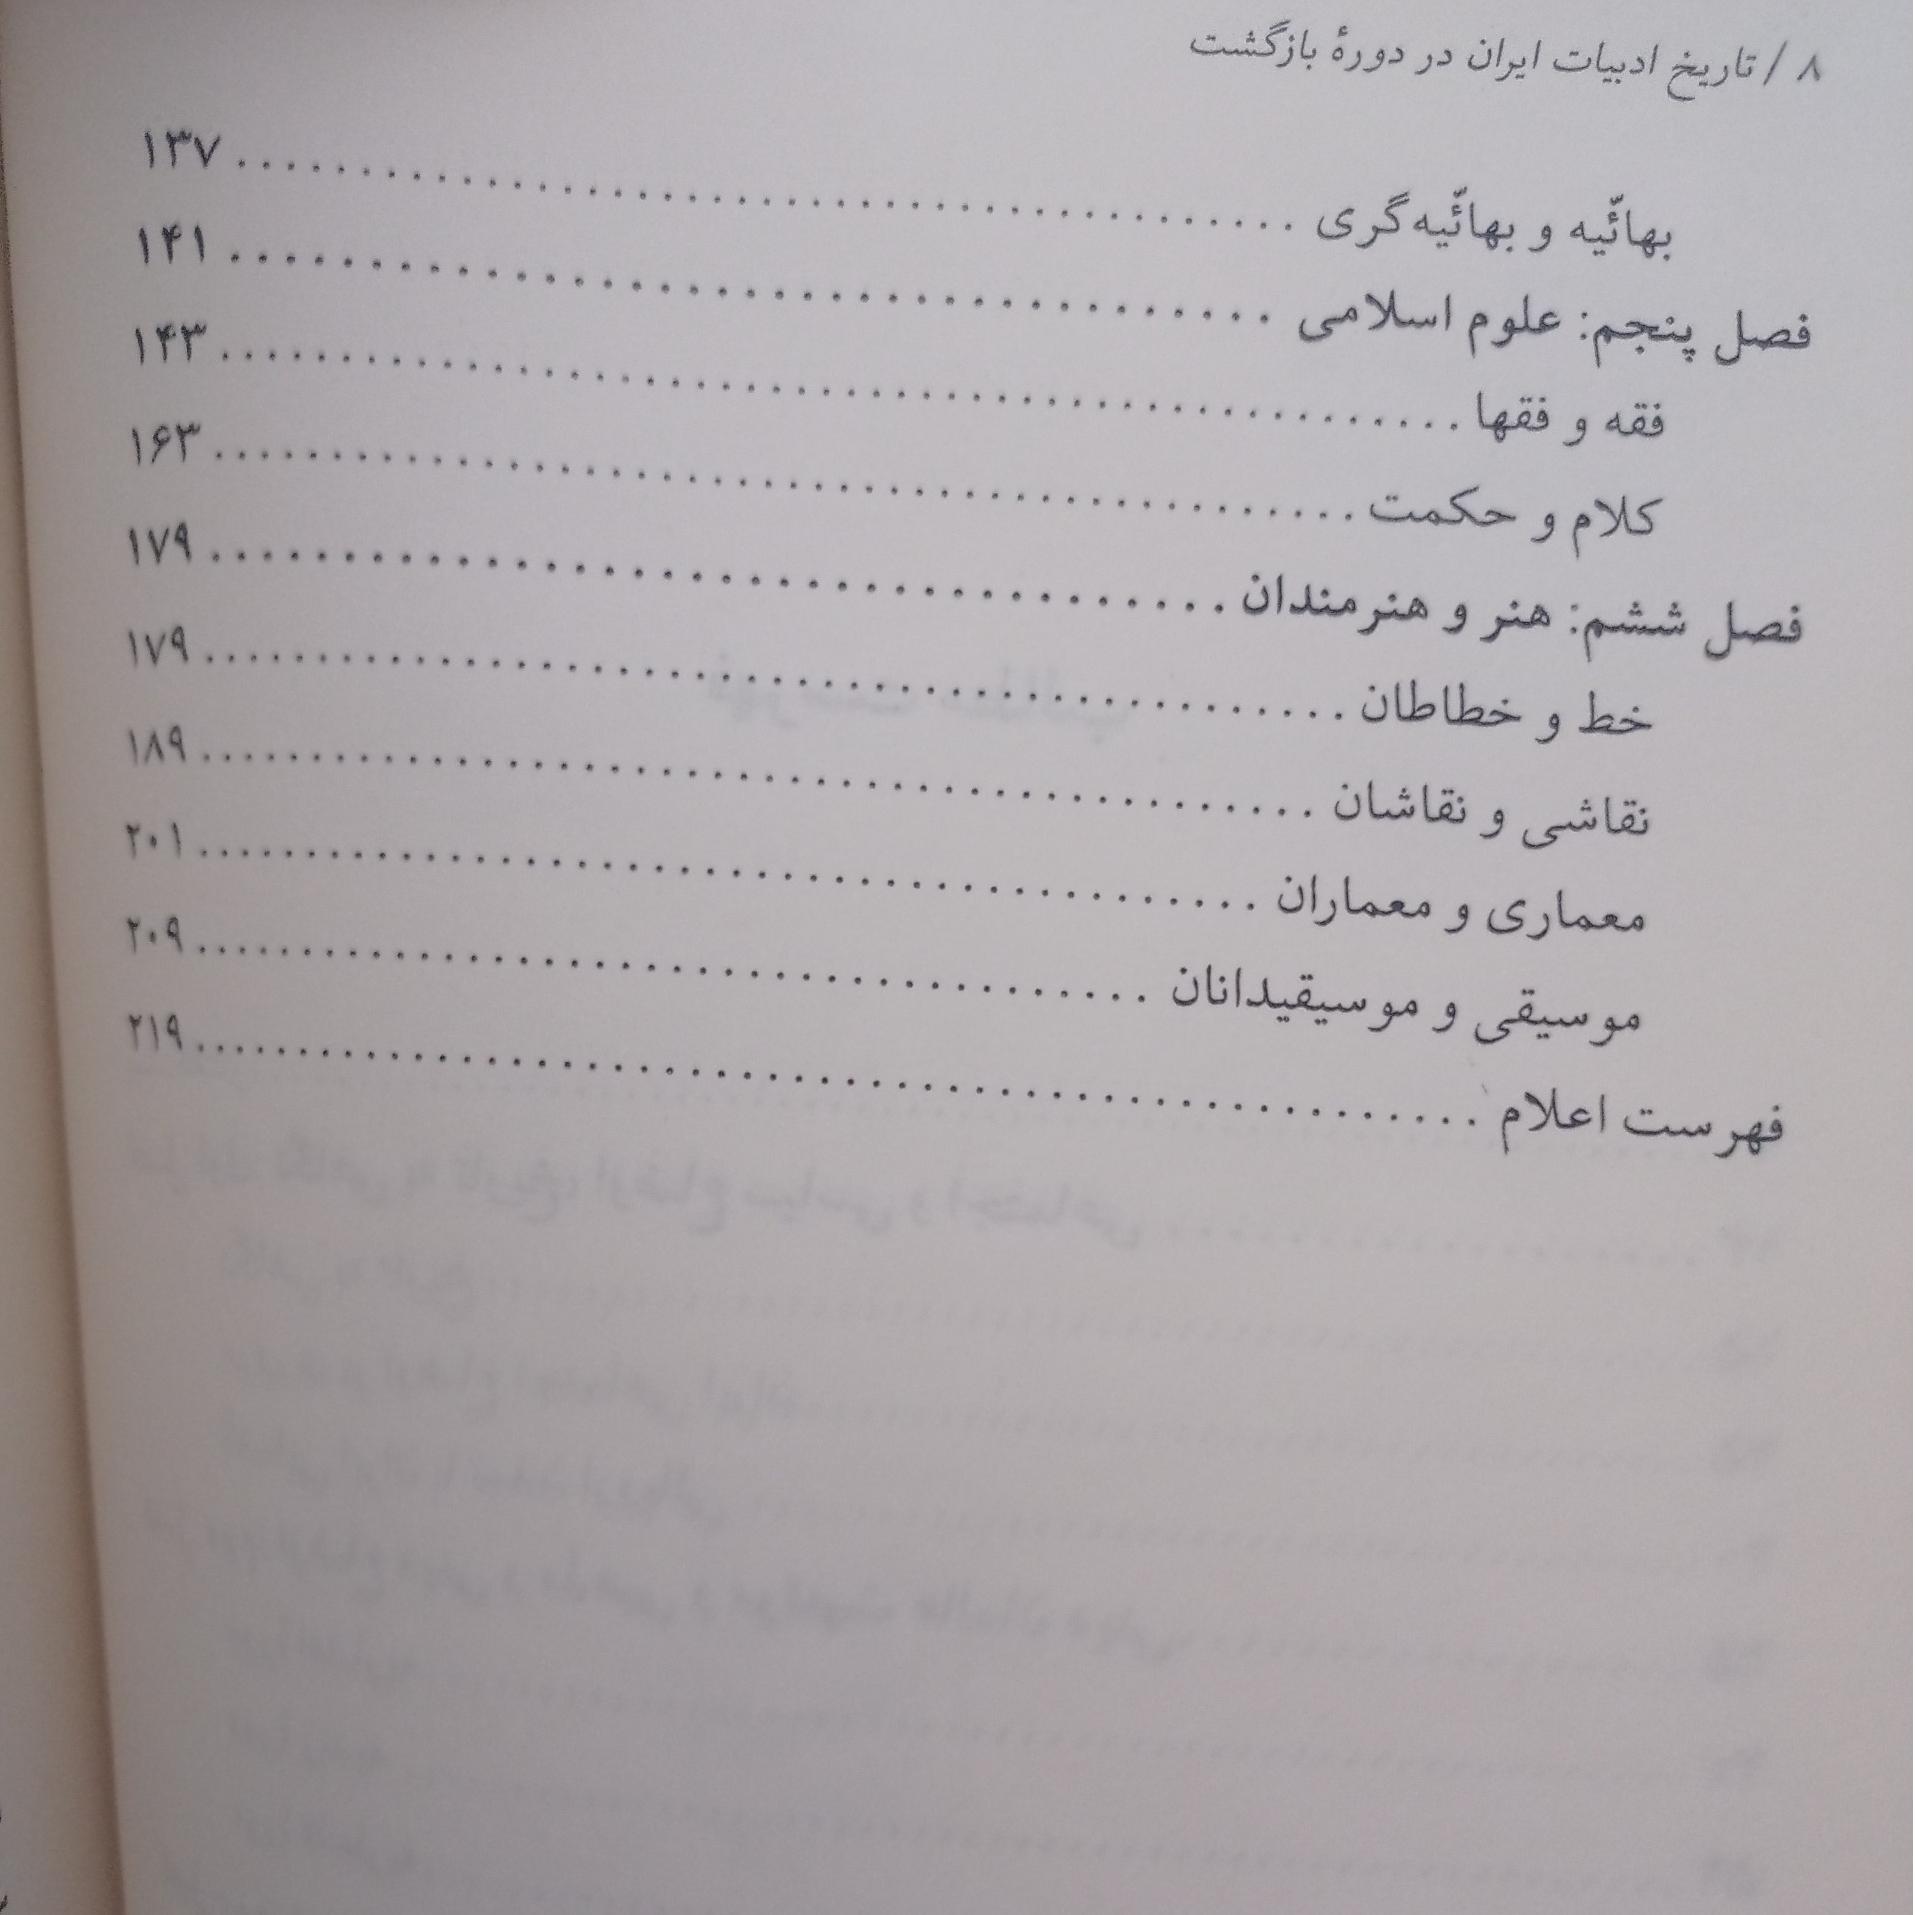 ۸ / تاریخ ادبیات ایران در دورهٔ بازگشت
بهائّیه و بهائّیه‌گری ........................................ ۱۳۷
فصل پنجم: علوم اسلامی ........................................ ۱۴۱
فقه و فقها ........................................ ۱۴۳
کلام و حکمت ........................................ ۱۶۳
فصل ششم: هنر و هنرمندان ........................................ ۱۷۹
خط و خطاطان ........................................ ۱۷۹
نقاشی و نقاشان ........................................ ۱۸۹
معماری و معماران ........................................ ۲۰۱
موسیقی و موسیقیدانان ........................................ ۲۰۹
فهرست اعلام ........................................ ۲۱۹